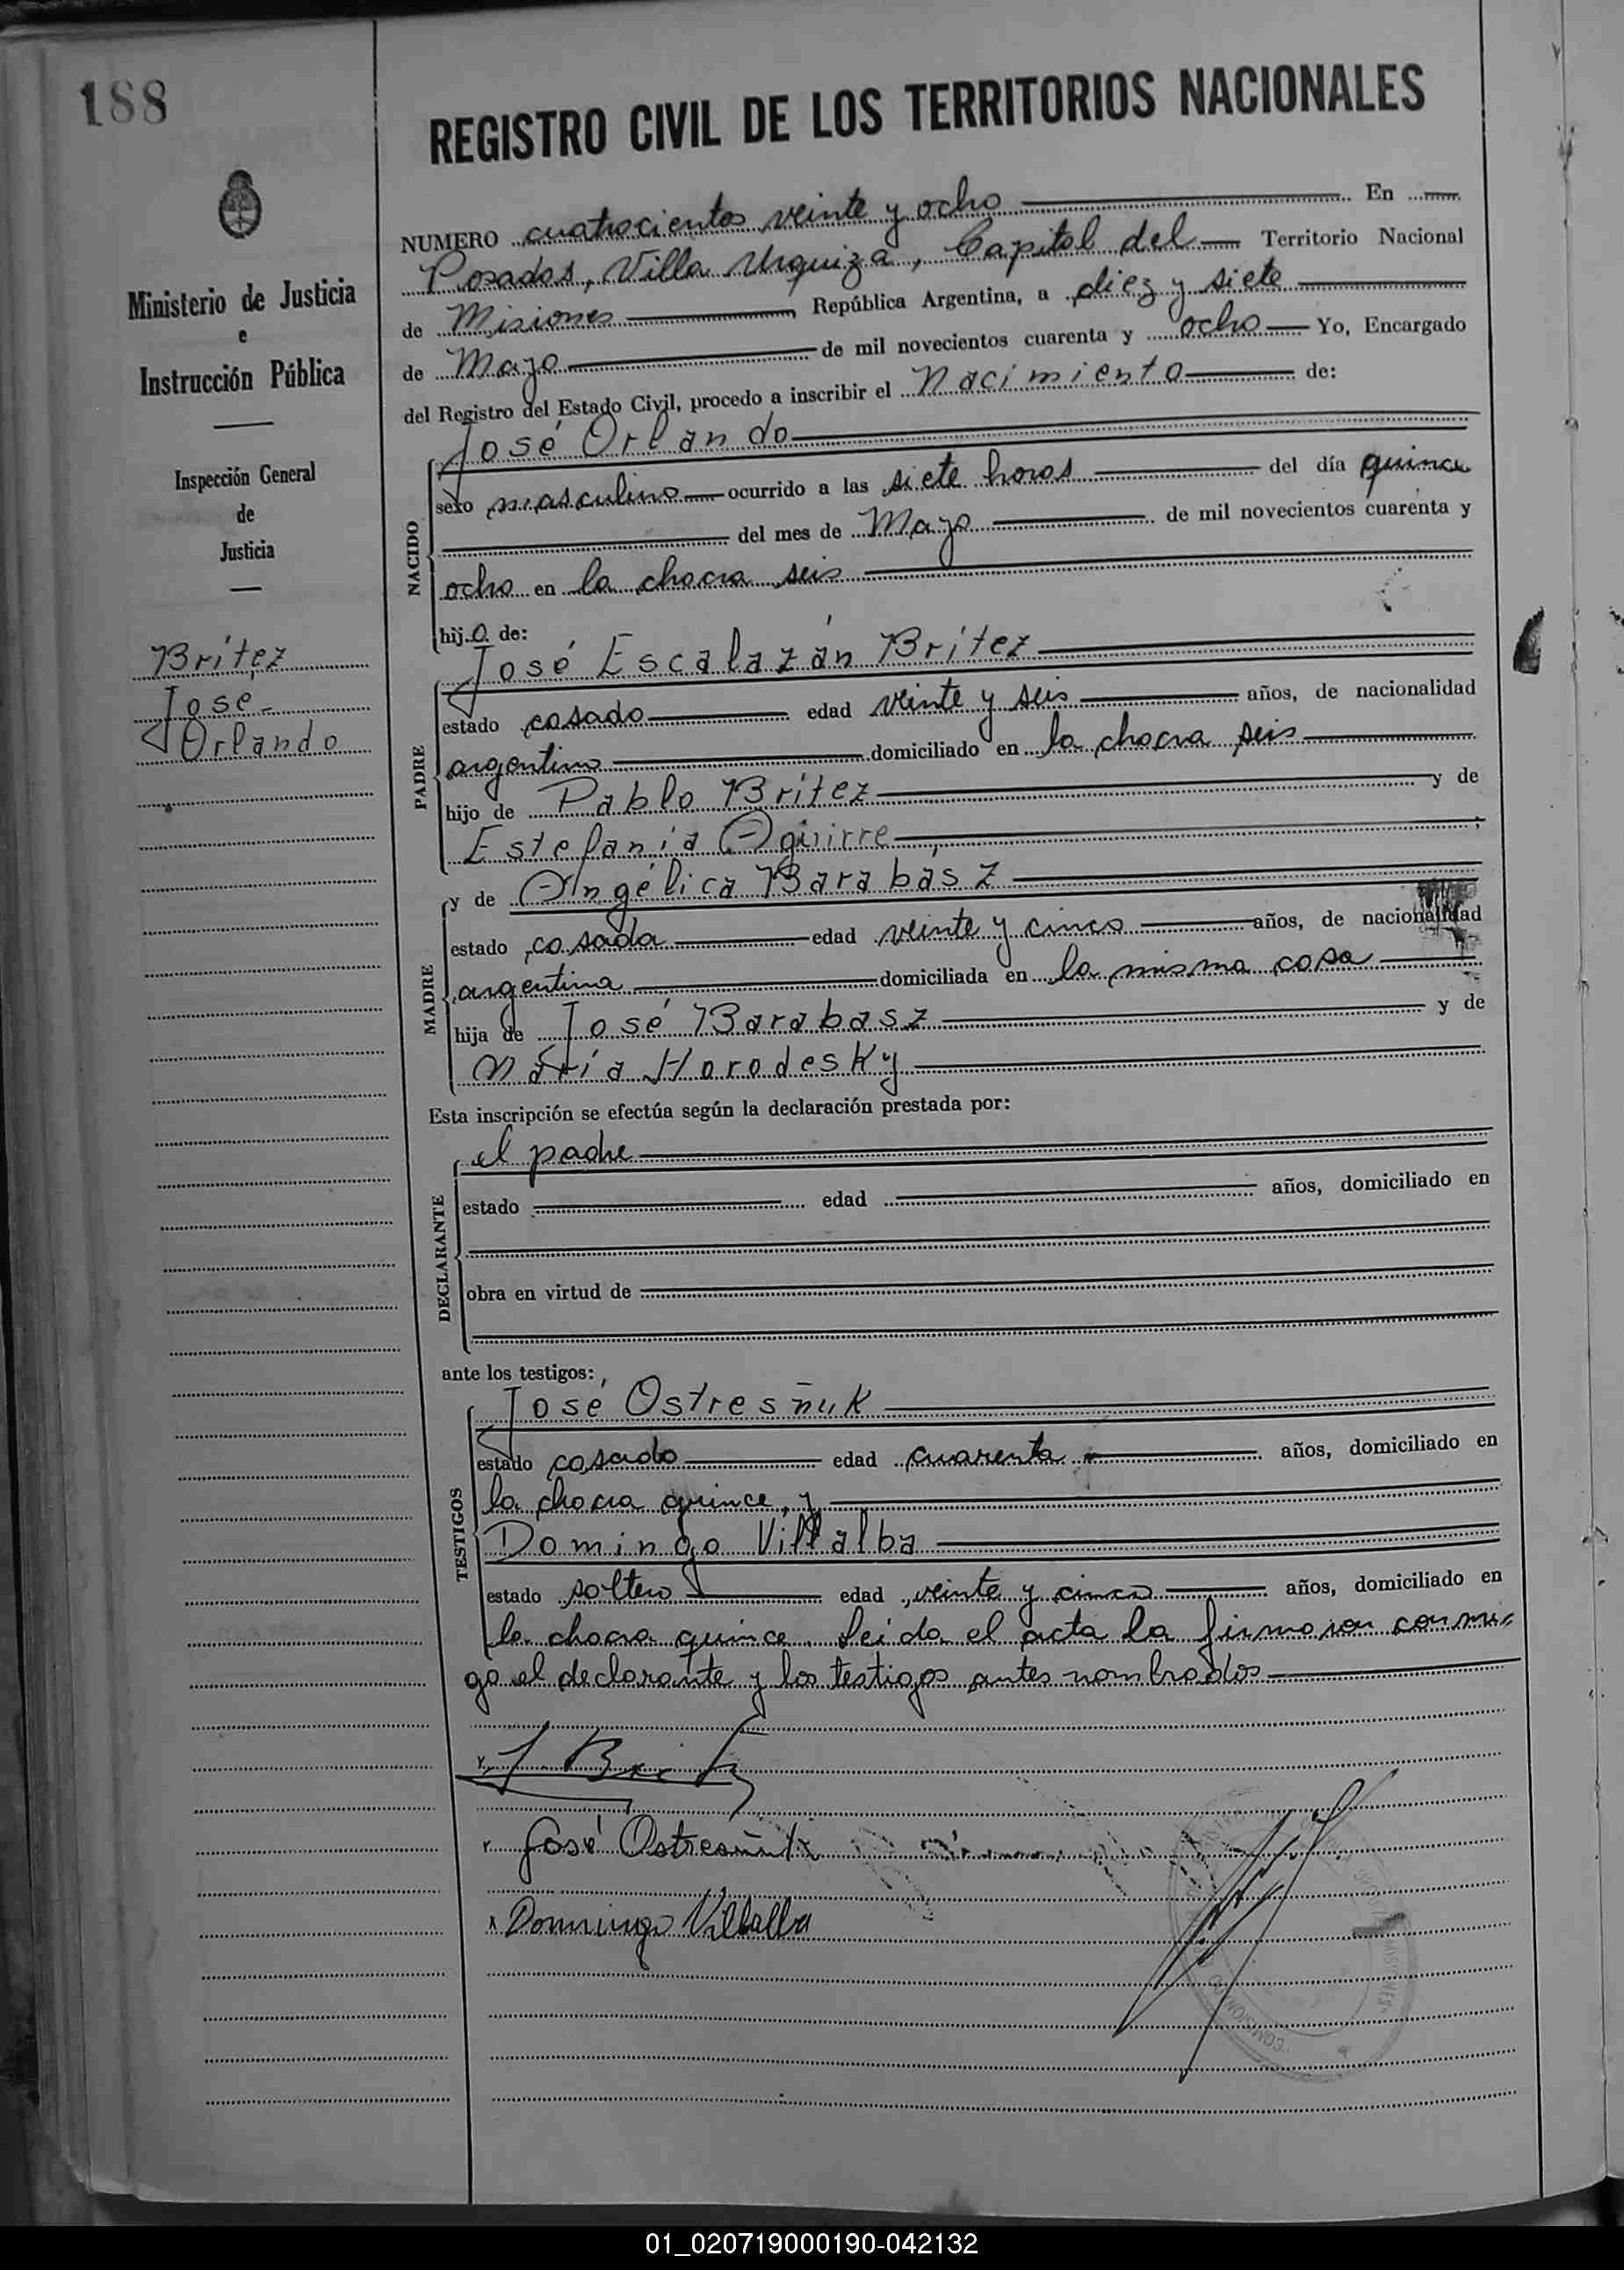 188
REGISTRO CIVIL DE LOS TERRITORIOS NACIONALES
Ministerio de Justicia
e
Instrucción Pública
Inspección General
de
Justicia
Britez
José
Orlando
NUMERO cuatrocientos veinte y ocho En
Posadas, Villa Urquiza, Capital del Territorio Nacional
de Misiones República Argentina, a diez y siete
de Mayo de mil novecientos cuarenta y ocho Yo, Encargado
del Registro del Estado Civil, procedo a inscribir el Nacimiento de:
NACIDO
José Orlando
sexo masculino ocurrido a las siete horas del día quince
del mes de Mayo de mil novecientos cuarenta y
ocho en la chacra seis
hijo de:
PADRE
José Escalazán Britez
estado casado edad veinte y seis años, de nacionalidad
argentino domiciliado en la chacra seis
hijo de Pablo Britez y de
Estefanía Aguirre
MADRE
y de Angélica Barabász
estado casada edad veinte y cinco años, de nacionalidad
argentina domiciliada en la misma casa
hija de José Barabasz y de
María Horodesky
Esta inscripción se efectúa según la declaración prestada por:
DECLARANTE
el padre
estado edad años, domiciliado en
obra en virtud de
ante los testigos:
TESTIGOS
José Ostresñuk
estado casado edad cuarenta años, domiciliado en
la chacra quince, y
Domingo Villalba
estado soltero edad veinte y cinco años, domiciliado en
la chacra quince. Leida el acta la firmaron conmi-
go el declarante y los testigos antes nombrados
J Britez
José Ostresñuk
Domingo Villalba
MISIONES
COMISION
01_020719000190-042132